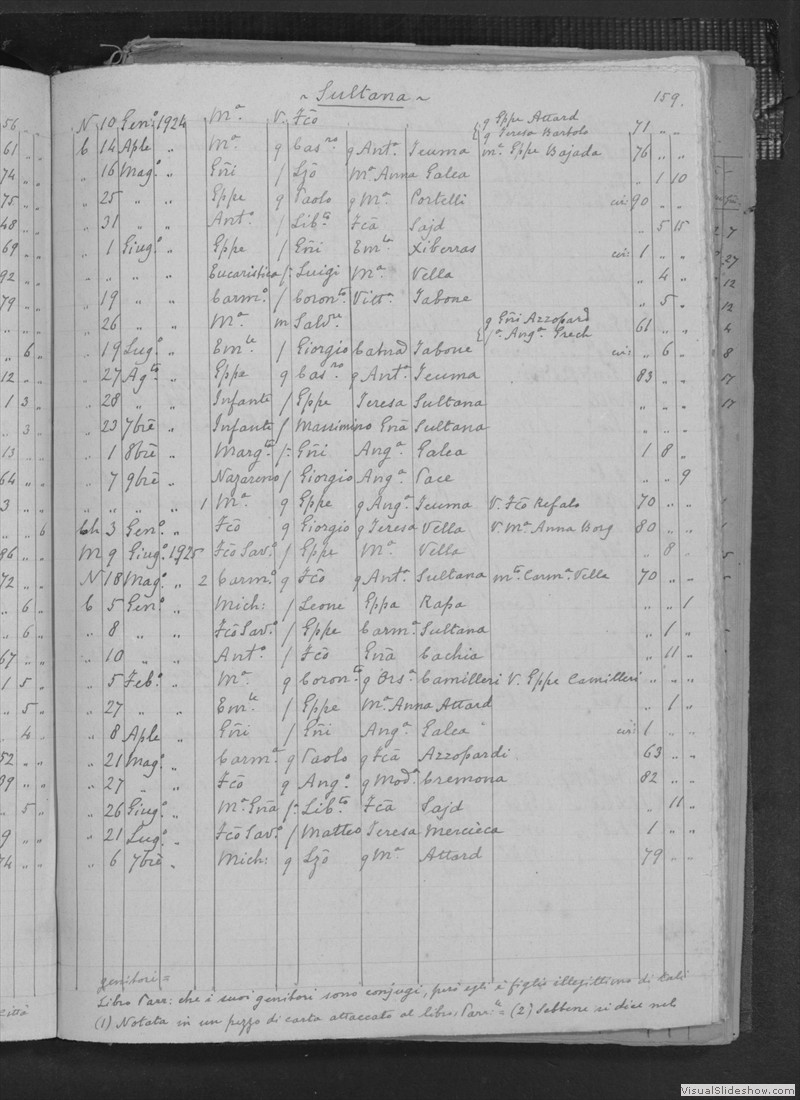 ~ Sultana ~ 159.
N 10 Gen.º 1924 Mª V. Fc̄o { q Eppe Attard 71 „ „
q Teresa Bartolo
C 14 Aple „ Mª q Casʳᵒ q Antª Teuma mª Eppe Bajada 76 „ „
„ 16 Mag.º „ Gñi / Ljō Mª Anna Galea „ 1 10
„ 25 „ „ Eppe q Paolo q Mª Portelli cir: 90 „ „
„ 31 „ „ Antº / Libᵗᵒ Fc̄a Sajd „ 5 15
„ 1 Giug.º „ Eppe / Gñi Emˡᵃ Xiberras cir: 1 „ „
„ „ „ „ Eucaristica /: Luigi Mª Vella „ 4 „
„ 19 „ „ Carmº / Coronᵗᵒ Vittª Tabone „ 5 „
„ 26 „ „ Mª m Salvʳᵉ { q Gñi Azzopard 61 „ „
/ª Angª Grech
„ 19 Lug.º „ Emˡᵉ / Giorgio Catnad Tabone cir: „ 6 „
„ 27 Agᵗᵒ „ Eppa q Casʳᵒ q Antª Teuma 83 „ „
„ 28 „ „ Infante / Eppe Teresa Sultana „ „ „
„ 23 7brē „ Infante / Massimino Gñā Sultana „ „ „
„ 1 8brē „ Margᵗᵃ /: Gñi Angª Galea 1 8 „
„ 7 9brē „ Nazareno / Giorgio Angª Pace „ „ 9
„ „ „ „ 1 Mª q Eppe q Angª Teuma V. Fc̄o Refalo 70 „ „
Ch 3 Gen.º „ Fc̄o q Giorgio q Teresa Vella V. Mª Anna Borg 80 „ „
M 9 Giug.º 1925 Fc̄o Sav.º / Eppe Mª Vella „ 8 „
N 18 Mag.º „ 2 Carmº q Fc̄o q Antª Sultana mᵗᵒ Carmª Vella 70 „ „
C 5 Gen.º „ Mich: / Leone Eppa Rapa „ „ 1
„ 8 „ „ Fc̄o Sav.º / Eppe Carmª Sultana „ 1 „
„ 10 „ „ Antº / Fc̄o Gñā Cachia „ 11 „
„ 5 Feb.º „ Mª q Coronᵗᵒ q Orsª Camilleri V. Eppe Camilleri „ „ „
„ 27 „ „ Emˡᵉ / Eppe Mª Anna Attard „ 1 „
„ 8 Aple „ Gñi / Gñi Angª Galea cir: 1 „ „
„ 21 Mag.º „ Carmª q Paolo q Fc̄a Azzopardi 63 „ „
„ 27 „ „ Fc̄o q Angº q Modª Cremona 82 „ „
„ 26 Giug.º „ Mª Gñā /: Libᵗᵒ Fc̄a Sajd „ 11 „
„ 21 Lug.º „ Fc̄o Sav.º / Matteo Teresa Mercieca 1 „ „
„ 6 7brē „ Mich: q Ljō q Mª Attard 79 „ „
genitori =
Libro Parr: che i suoi genitori sono conjugi, però egli è figlio illegittimo di tali
(1) Notata in un pezzo di carta attaccato al libro: Parrˡᵉ = (2) Sebbene si dice nel
VisualSlideshow.com